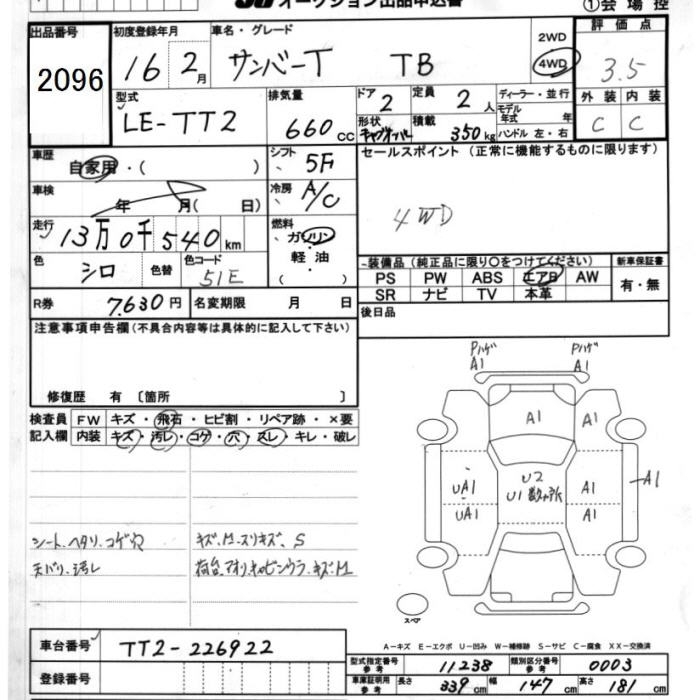 オークション出品申込書 ①会場控
出品番号 2096
初度登録年月 16 2月
車名・グレード サンバーT TB
2WD
4WD
評価点 3.5
外装 内装
C C
型式 LE-TT2
排気量 660 cc
ドア 2
定員 2 人
形状 キャブオーバー
積載 350 kg
ディーラー・並行
モデル年式 年
ハンドル 左・右
車歴 自家用・( )
シフト 5F
セールスポイント (正常に機能するものに限ります)
4WD
車検 年 月( 日)
冷房 A/C
走行 13万0千540 km
燃料 ガソリン・軽油・( )
色 シロ 色替
色カラーコード 51E
装備品 (純正品に限り〇をつけてください)
新車保証書
PS PW ABS エアB AW
SR ナビ TV 本革
有・無
R券 7,630円 名変期限 月 日
後日品
注意事項申告欄(不具合内容等は具体的に記入して下さい)
修復歴 有 〔箇所 〕
検査員 FW キズ・飛石・ヒビ割・リペア跡・×要
記入欄 内装 キズ・汚レ・コゲ・穴・スレ・キレ・破レ
シート、ヘタリ、コゲ穴
天バリ、汚レ
キズ、M、スリキズ、S
Pハゲ Pハゲ
A1 A1
A1
U2
U1 数ヶ所
UA1 A1
UA1 A1
A1
スペア
A-キズ E-エクボ U-凹み W-補修跡 S-サビ C-腐食 XX-交換済
車台番号 TT2-226922
登録番号
型式指定番号 参考 11238 類別区分番号 参考 0003
車庫証明用 参考 長さ 339 cm 幅 147 cm 高さ 181 cm